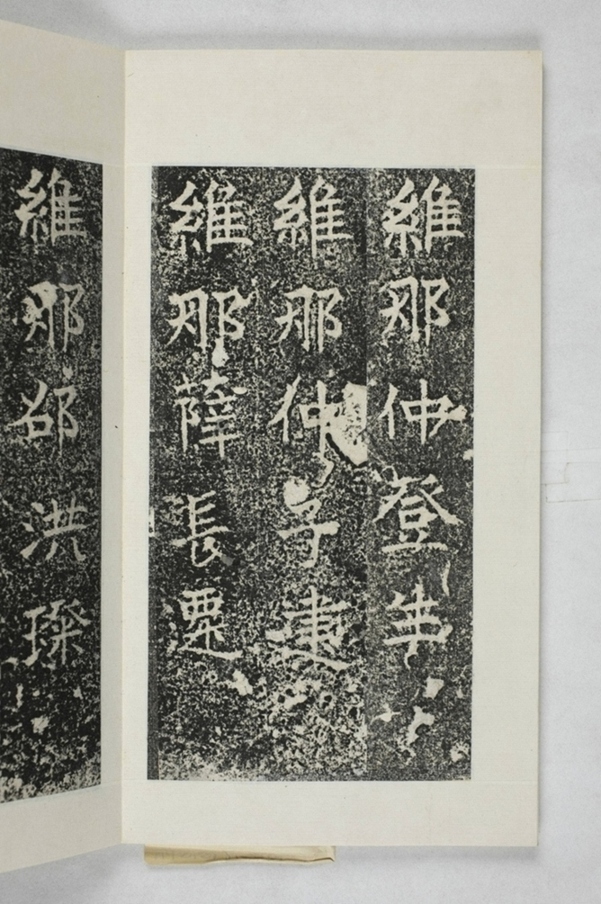 維那仲登
維那仲子建
維那薛長
維那邵洪璨